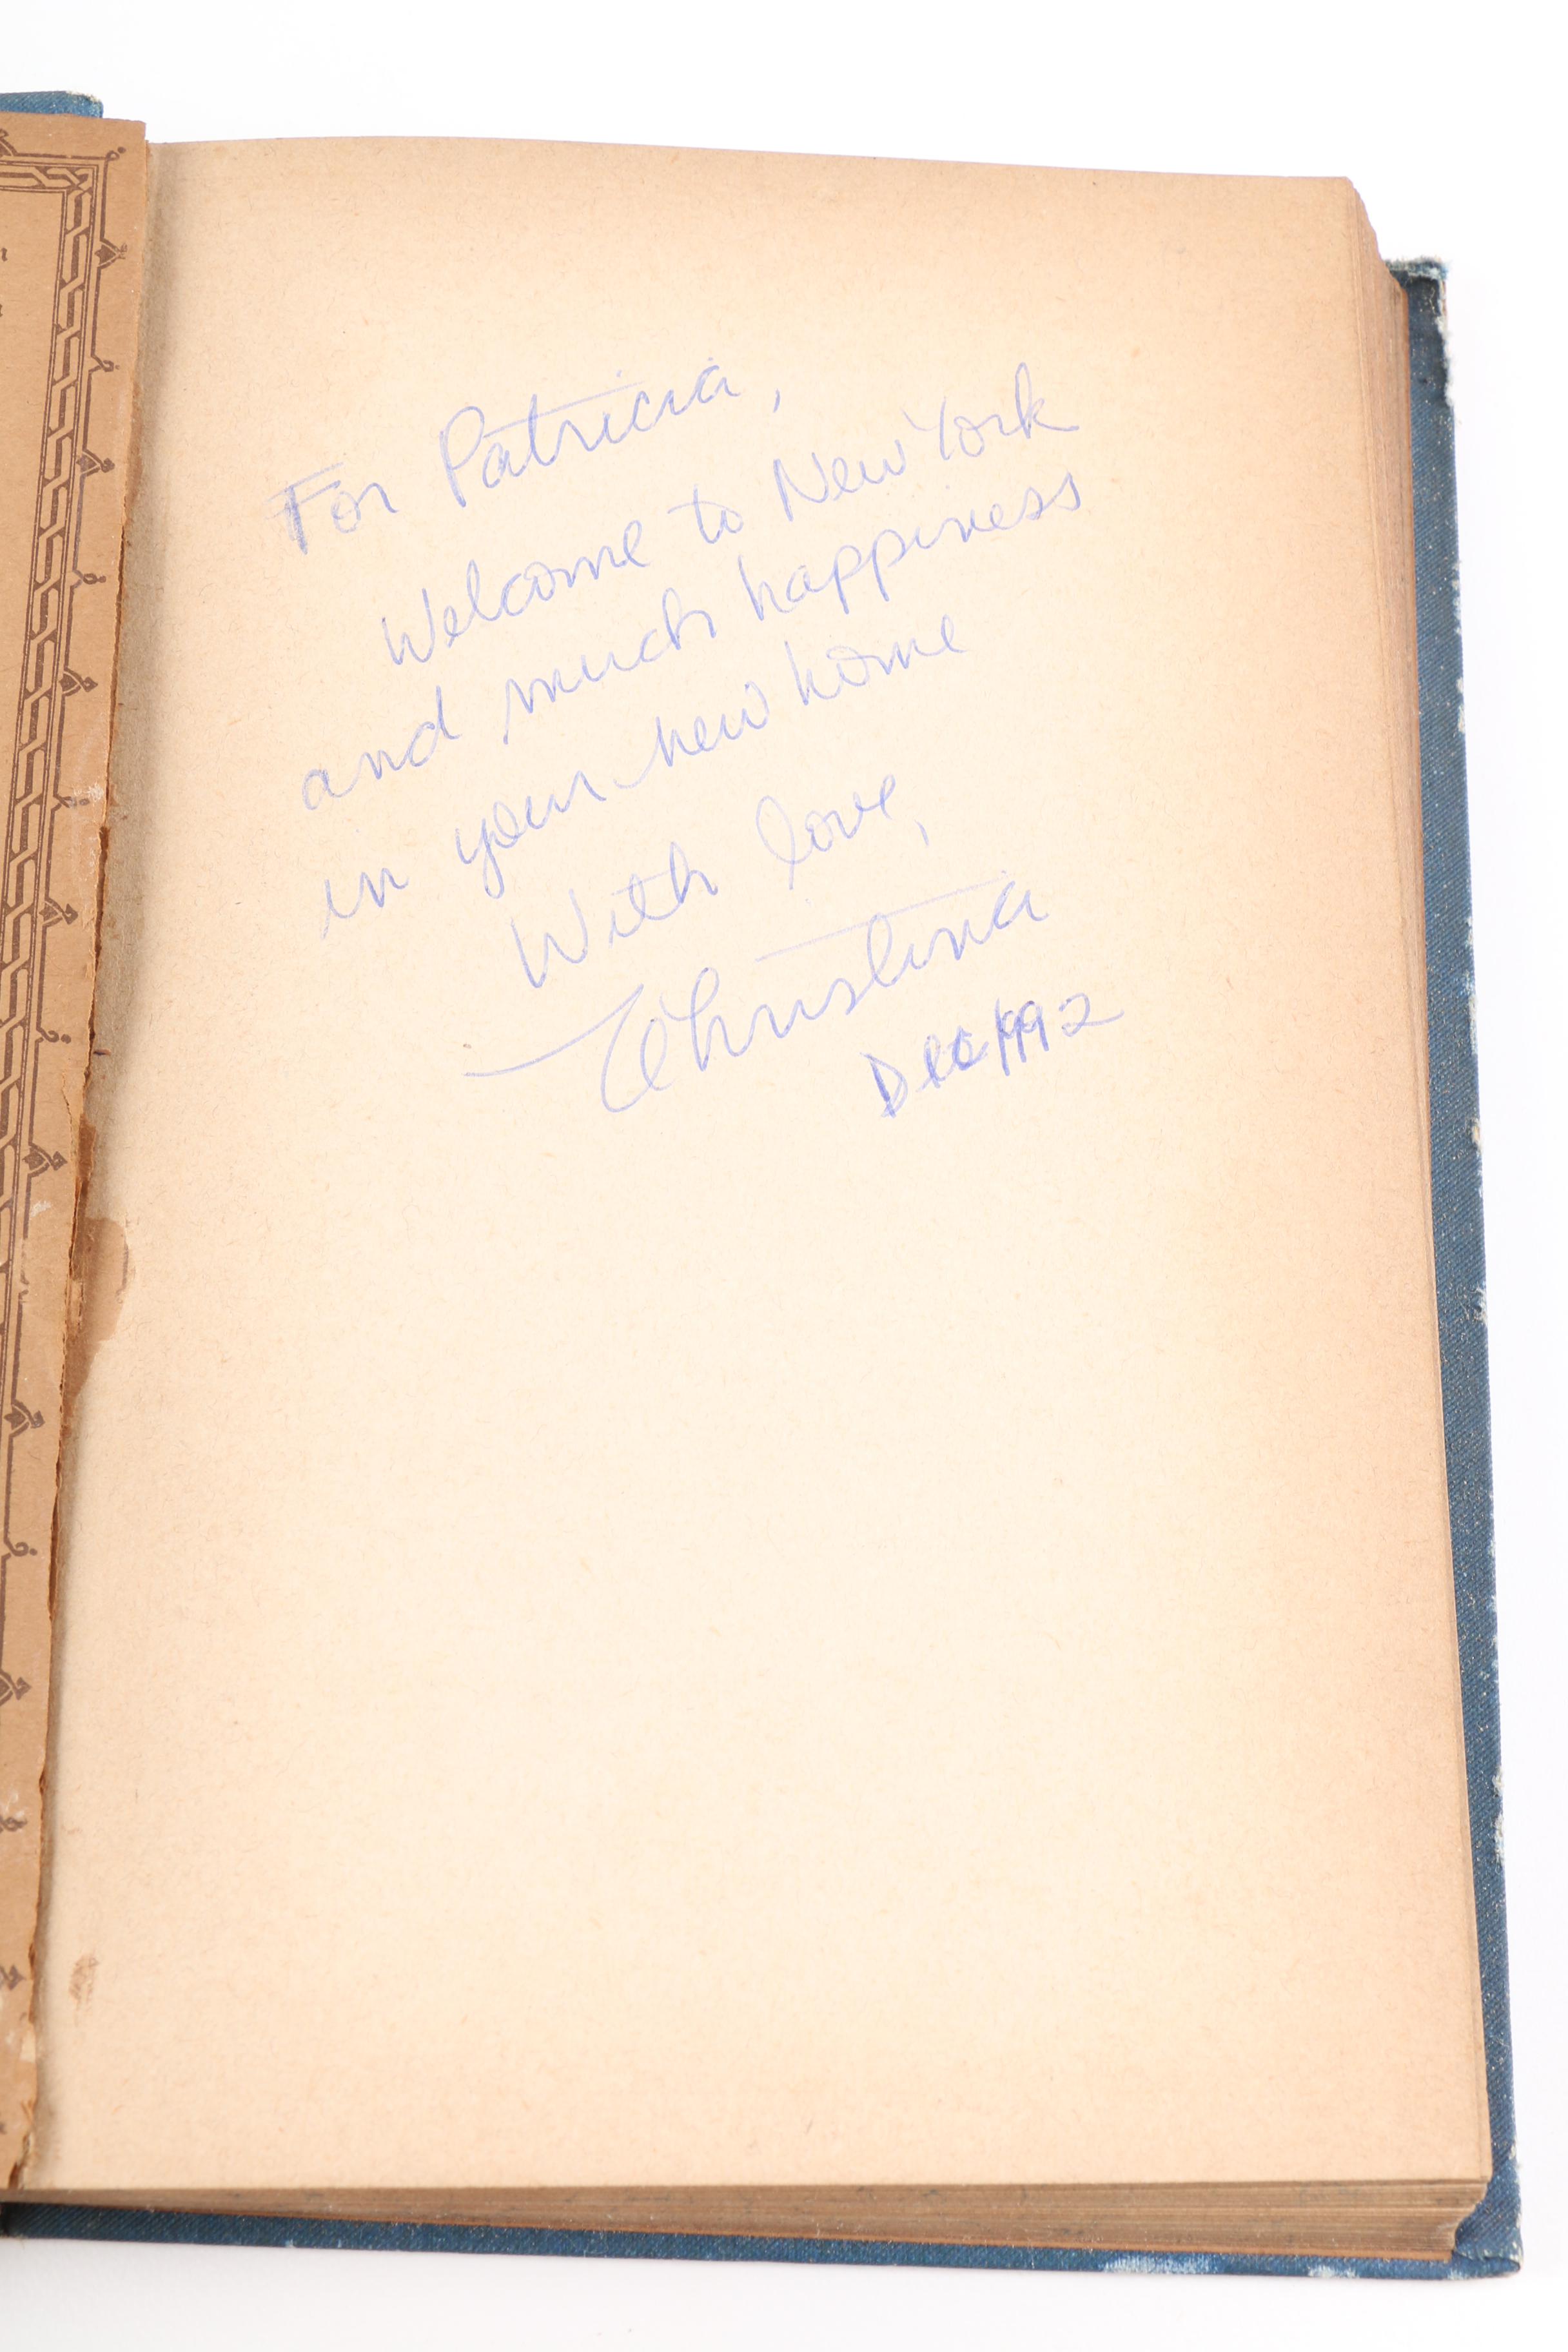 For Patricia,
Welcome to New York
and much happiness
in your new home
With love,
Christina
Dec 1992